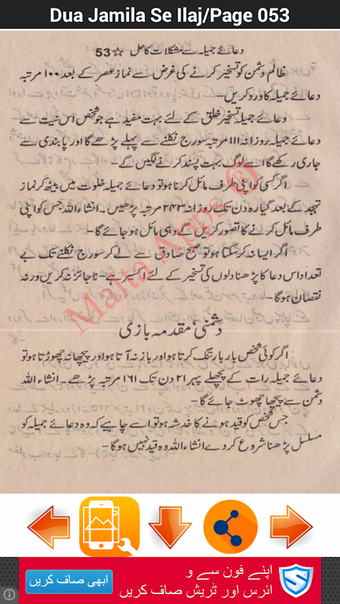 Dua Jamila Se Ilaj/Page 053
دعائے جمیلہ سے مشکلات کا حل ☆ 53
ظالم دشمن کو تسخیر کرنے کی غرض سے نماز عصر کے بعد ۱۰۰ مرتبہ
دعائے جمیلہ کا ورد کریں۔
دعائے جمیلہ تسخیر خلق کے لئے بہت مفید ہے جو شخص اس نیت سے
دعائے جمیلہ روزانہ ۱۱۱ مرتبہ سورج نکلنے سے پہلے پڑھے گا اور پابندی سے
جاری رکھے گا اسے لوگ بہت پسند کرنے لگیں گے۔
اگر کسی کو اپنی طرف مائل کرنا ہو تو دعائے جمیلہ خلوت میں بیٹھ کر نماز
تہجد کے بعد گیارہ دن تک روزانہ ۲۴۳ مرتبہ پڑھیں۔ انشاء اللہ جس کو اپنی
طرف مائل کرنے کا تصور کریں گے وہی مائل ہو جائے گا۔
اگر ایسا نہ کر سکتا ہو تو صبح صادق سے لے کر سورج نکلنے تک بے
تعداد اس دعا کا پڑھنا دلوں کی تسخیر کے لئے اکسیر ہے ناجائز نہ کریں ورنہ
نقصان ہوگا۔
دشمنی، مقدمہ بازی
اگر کوئی شخص بار بار تنگ کرتا ہو اور باز نہ آتا ہو اور پیچھا نہ چھوڑتا ہو تو
دعائے جمیلہ رات کے پچھلے پہر ۲۱ دن تک ۱۶۱ مرتبہ پڑھے۔ انشاء اللہ
دشمن سے پیچھا چھوٹ جائے گا۔
جس شخص کو قید ہونے کا خدشہ ہو تو اسے چاہیے کہ وہ دعائے جمیلہ کو
مسلسل پڑھنا شروع کر دے انشاء اللہ وہ قید نہیں ہوگا۔
Malta Apps @
اپنے فون سے و
ائرس اور ٹریش صاف کریں
ابھی صاف کریں